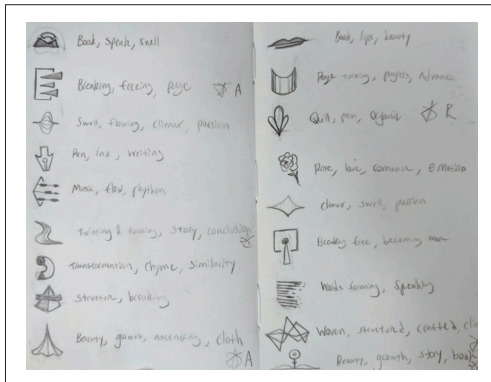 Book, speak, swell
Breaking, freeing, page A
Swell, flowing, climax, passion
Pen, ink, writing
Music, flow, rhythm
Twisting & turning, story, conclusion
Transformation, rhyme, similarity
Structure, breaking
Beauty, growth, ascending, cloth
A
Book, lips, beauty
Page turning, progress, advance
Quill, pen, organic R
Rose, love, romance, emotion
climax, swell, passion
Breaking free, becoming
Words forming, speaking
Woven, structured, crafted,
Beauty, growth, story, book